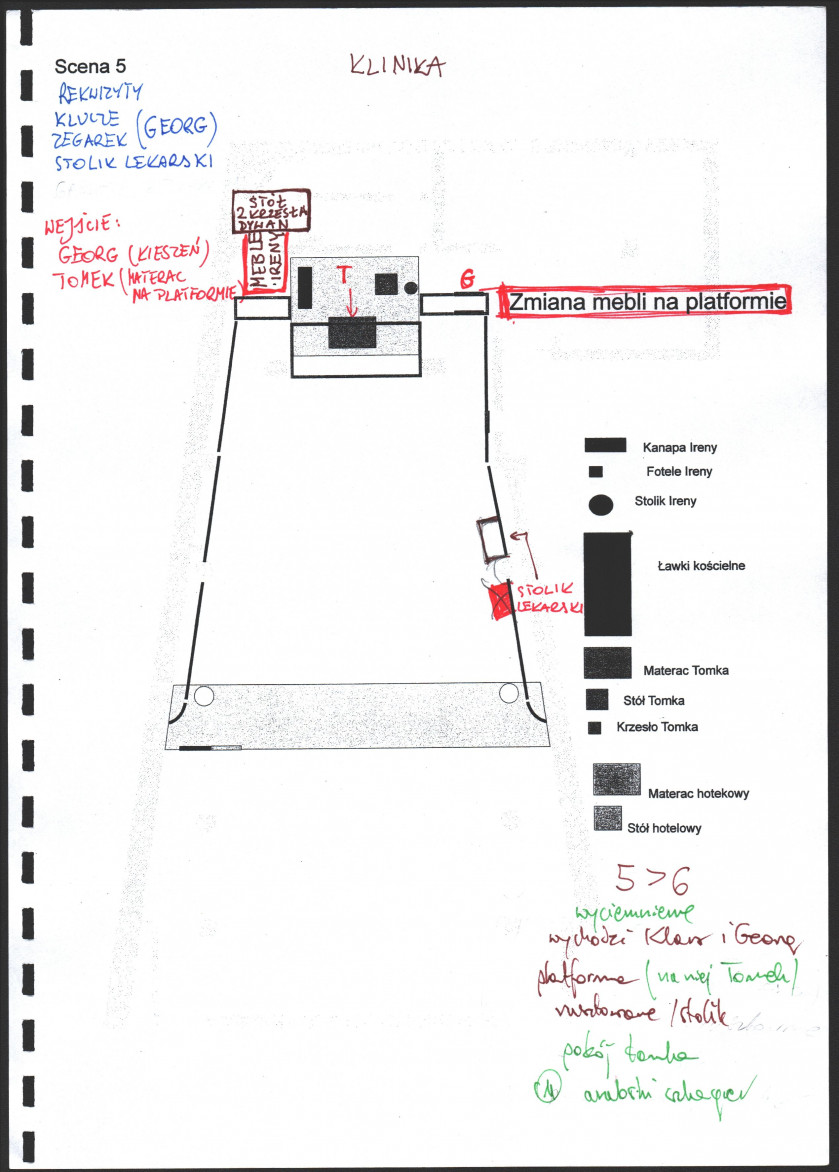 Scena 5
KLINIKA
REKWIZYTY
KLUCZE
ZEGAREK (GEORG)
STOLIK LEKARSKI
WEJŚCIE:
GEORG (KIESZEŃ)
TOMEK (MATERAC
NA PLATFORMIE)
STÓŁ
2 KRZESŁA
DYWAN
MEBLE
IRENY
T
G
Zmiana mebli na platformie
Kanapa Ireny
Fotele Ireny
Stolik Ireny
Ławki kościelne
STOLIK
LEKARSKI
Materac Tomka
Stół Tomka
Krzesło Tomka
Materac hotekowy
Stół hotelowy
5>6
wyciemnienie
wychodzi Klara i Georg
platforma (na niej Tomek)
/stolik
pokój Tomka